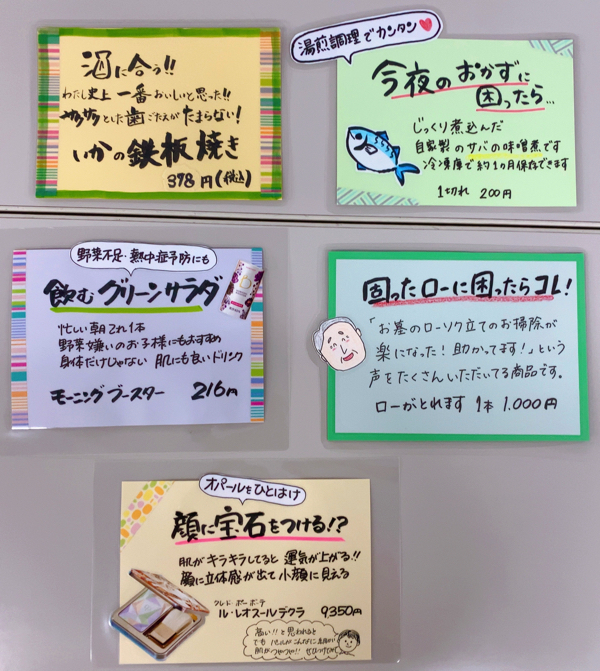 酒に合う!!
わたし史上 一番おいしいと思った!!
サクサクとした歯ごたえがたまらない!
いかの鉄板焼き
378円(税込)
湯煎調理でカンタン♥
今夜のおかずに
困ったら…
じっくり煮込んだ
自家製のサバの味噌煮です
冷凍庫で約1ヵ月保存できます
1切れ 200円
野菜不足・熱中症予防にも
飲むグリーンサラダ
忙しい朝これ1本
野菜嫌いのお子様にもおすすめ
身体だけじゃない 肌にも良いドリンク
モーニングブースター 216円
固ったローに困ったらコレ!
「お墓のローソク立てのお掃除が
楽になった!助かってます!」という
声をたくさんいただいてる商品です。
ローがとれます 1本 1.000円
オパールをひとはけ
顔に宝石をつける!?
肌がキラキラしてると 運気が上がる!!
顔に立体感が出て小顔に見える
クレド・ポー ボーテ
ル・レオスールデクラ 9350円
高い!!と思われると
でも